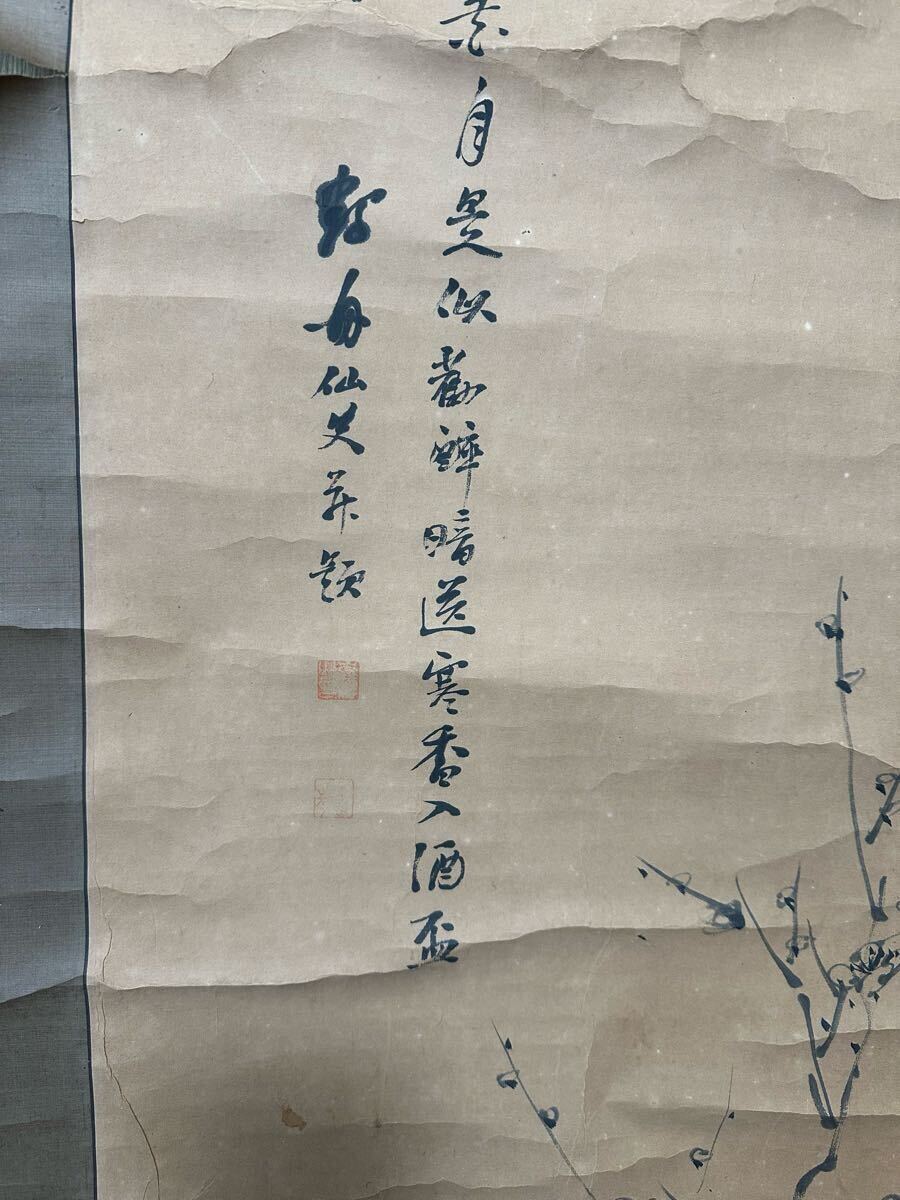 自是似勸醉暗送寒香入酒盃
舟仙史并題